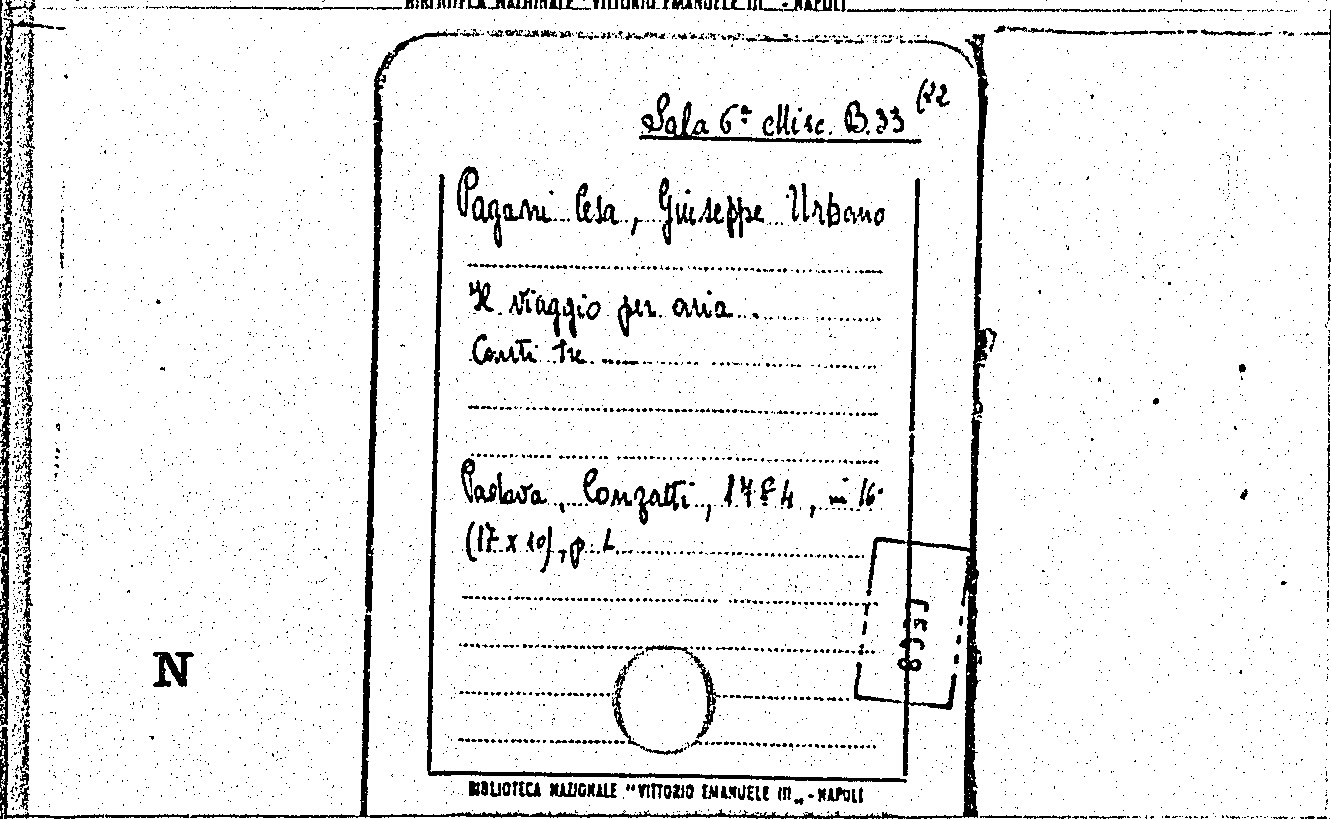 BIBLIOTECA NAZIONALE "VITTORIO EMANUELE III" - NAPOLI
Sala 6ª Misc. B.33 (22
Pagani Cesa, Giuseppe Urbano
Il viaggio per aria..
Canti tre ......
Padova, Conzatti, 1784, in 16°
(17 x 10), p. L
N
BIBLIOTECA NAZIONALE "VITTORIO EMANUELE III„ - NAPOLI